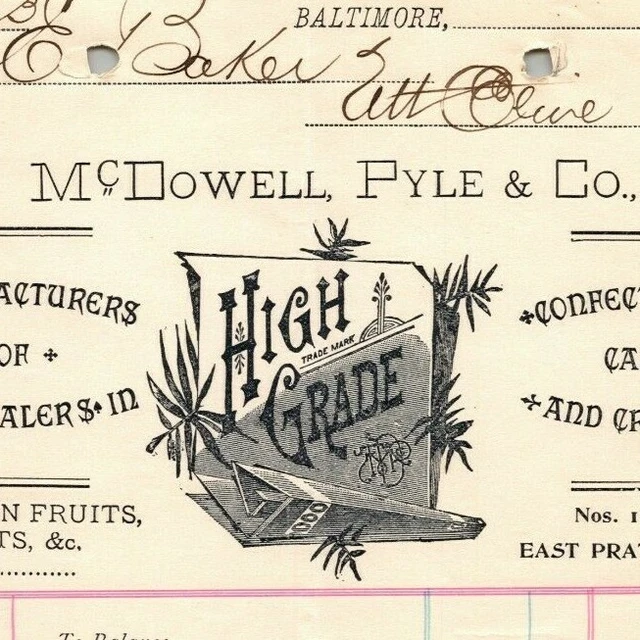 BALTIMORE,
E Baker
Att Oline
McDOWELL, PYLE & CO.,
ACTURERS
OF
ALERS IN
N FRUITS,
TS, &c.
HIGH
TRADE MARK
GRADE
CONFECT
CA
AND CR
Nos. 1
EAST PRAT
To Balance